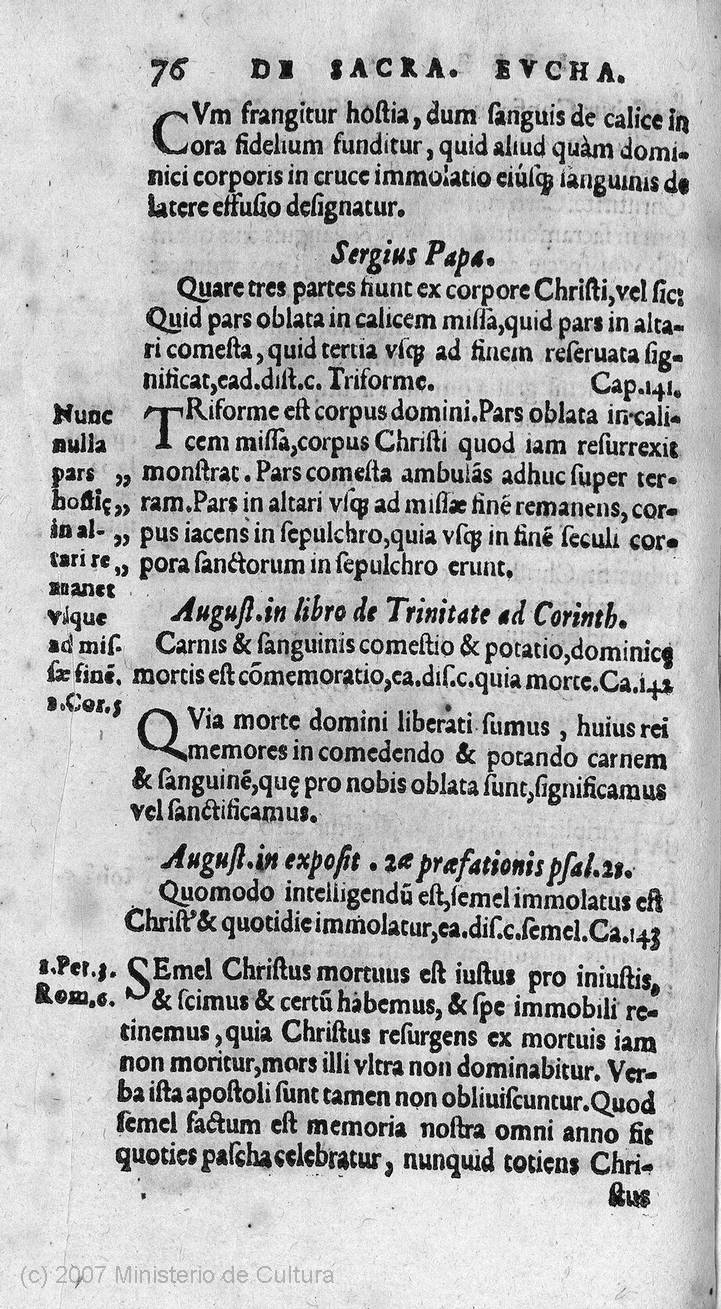 76 DE SACRA. EVCHA.
CVm frangitur hoſtia, dum ſanguis de calice in
ora fidelium funditur, quid aliud quàm domi-
nici corporis in cruce immolatio eiúſqꝫ ſanguinis de
latere effuſio deſignatur.
Sergius Papa.
Quare tres partes fiunt ex corpore Chriſti, vel ſic:
Quid pars oblata in calicem miſſa, quid pars in alta-
ri comeſta, quid tertia vſqꝫ ad finem reſeruata ſig-
nificat, ead. diſt. c. Triforme. Cap. 141.
TRiforme eſt corpus domini. Pars oblata in cali-
cem miſſa, corpus Chriſti quod iam reſurrexit
monſtrat. Pars comeſta ambulãs adhuc ſuper ter-
ram. Pars in altari vſqꝫ ad miſſæ finẽ remanens, cor-
pus iacens in ſepulchro, quia vſqꝫ in finẽ ſeculi cor-
pora ſanctorum in ſepulchro erunt.
Nunc
nulla
pars „
hoſtię „
in al- „
tari re „
manet
vſque
ad miſ-
ſæ finẽ.
Auguſt. in libro de Trinitate ad Corinth.
Carnis & ſanguinis comeſtio & potatio, dominicę
mortis eſt cõmemoratio, ea. diſ. c. quia morte. Ca. 142
1. Cor. 5
QVia morte domini liberati ſumus, huius rei
memores in comedendo & potando carnem
& ſanguinẽ, quę pro nobis oblata ſunt, ſignificamus
vel ſanctificamus.
Auguſt. in expoſit. 2æ præfationis pſal. 21.
Quomodo intelligendũ eſt, ſemel immolatus eſt
Chriſt' & quotidie immolatur, ea. diſ. c. ſemel. Ca. 143
1. Per. 3.
Rom. 6.
SEmel Chriſtus mortuus eſt iuſtus pro iniuſtis,
& ſcimus & certũ habemus, & ſpe immobili re-
tinemus, quia Chriſtus reſurgens ex mortuis iam
non moritur, mors illi vltra non dominabitur. Ver-
ba iſta apoſtoli ſunt tamen non obliuiſcuntur. Quod
ſemel factum eſt memoria noſtra omni anno fit
quoties paſcha celebratur, nunquid totiens Chri-
ſtus
(c) 2007 Ministerio de Cultura